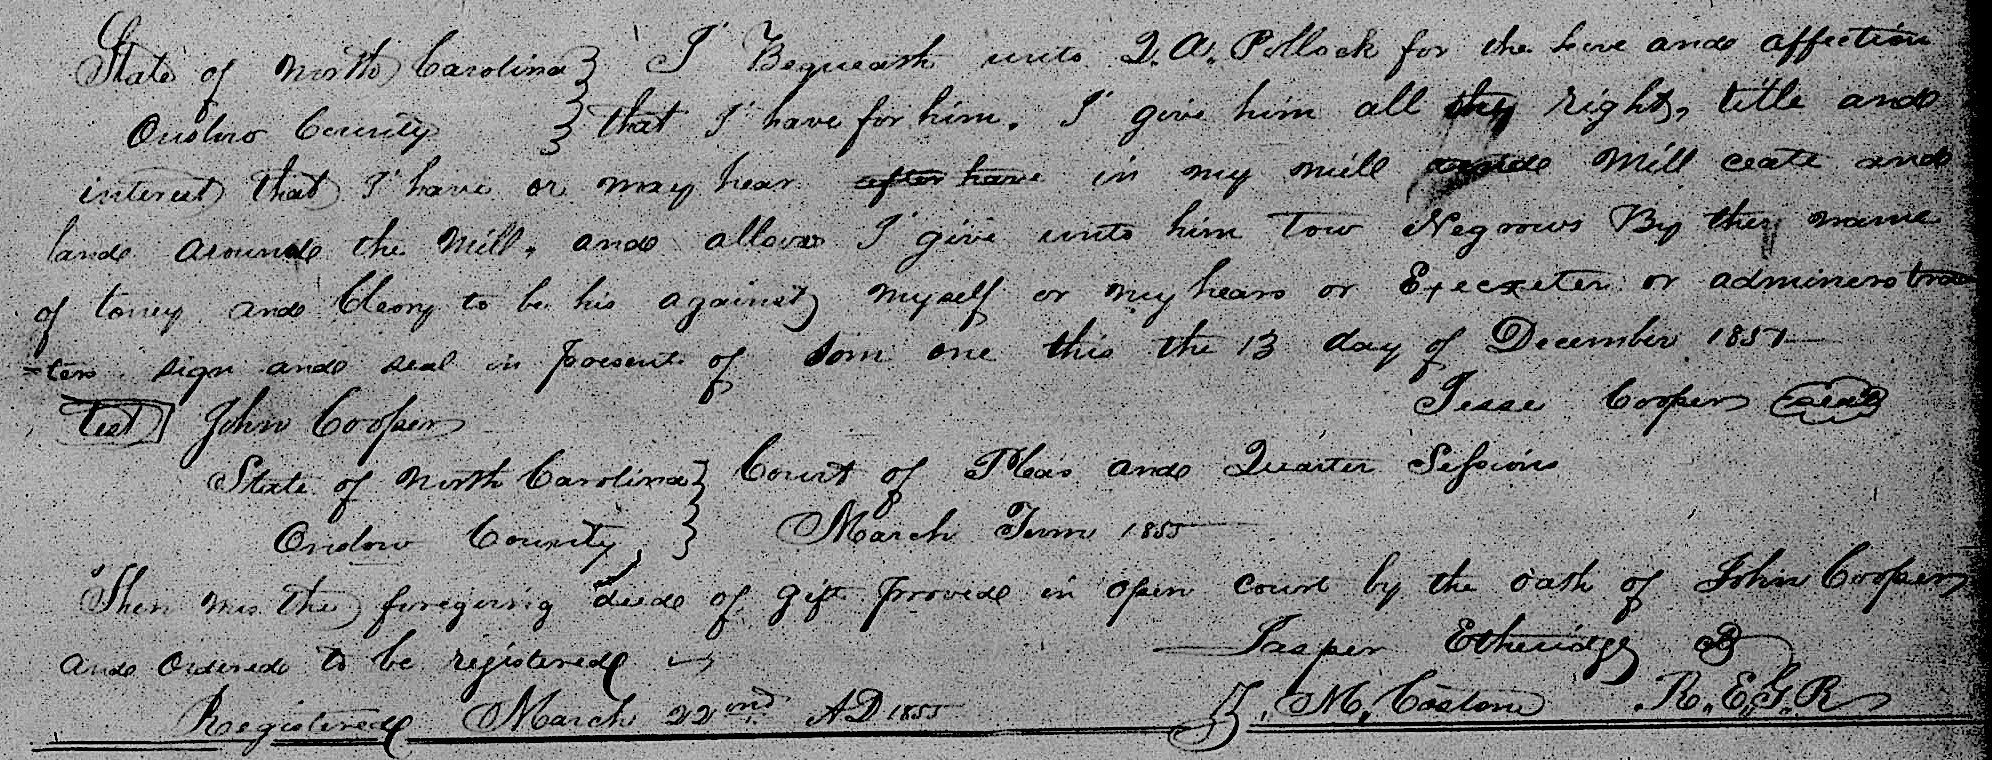 State of North Carolina } I Bequeath unto Q. A. Pollock for the love and affection
Onslow County } that I have for him. I give him all the right, title and
interest that I have or may hear after have in my mill and Mill ceate and
land around the Mill, and allso I give unto him tow Negrows By the name
of toney and Cleony to be his against myself or my hears or Execxeter or adminerstra
=ters sign and seal in presents of som one this the 13 day of December 1851
Jesse Cooper seal
Test John Cooper
State of North Carolina } Court of Pleas and Quarter Sessions
Onslow County } March Term 1855
Then was the foregoing deed of gift proved in open court by the oath of John Cooper
and ordered to be registered
Jasper Etheridge
Registered March 22nd AD 1855 M. Coston R.E.G.R